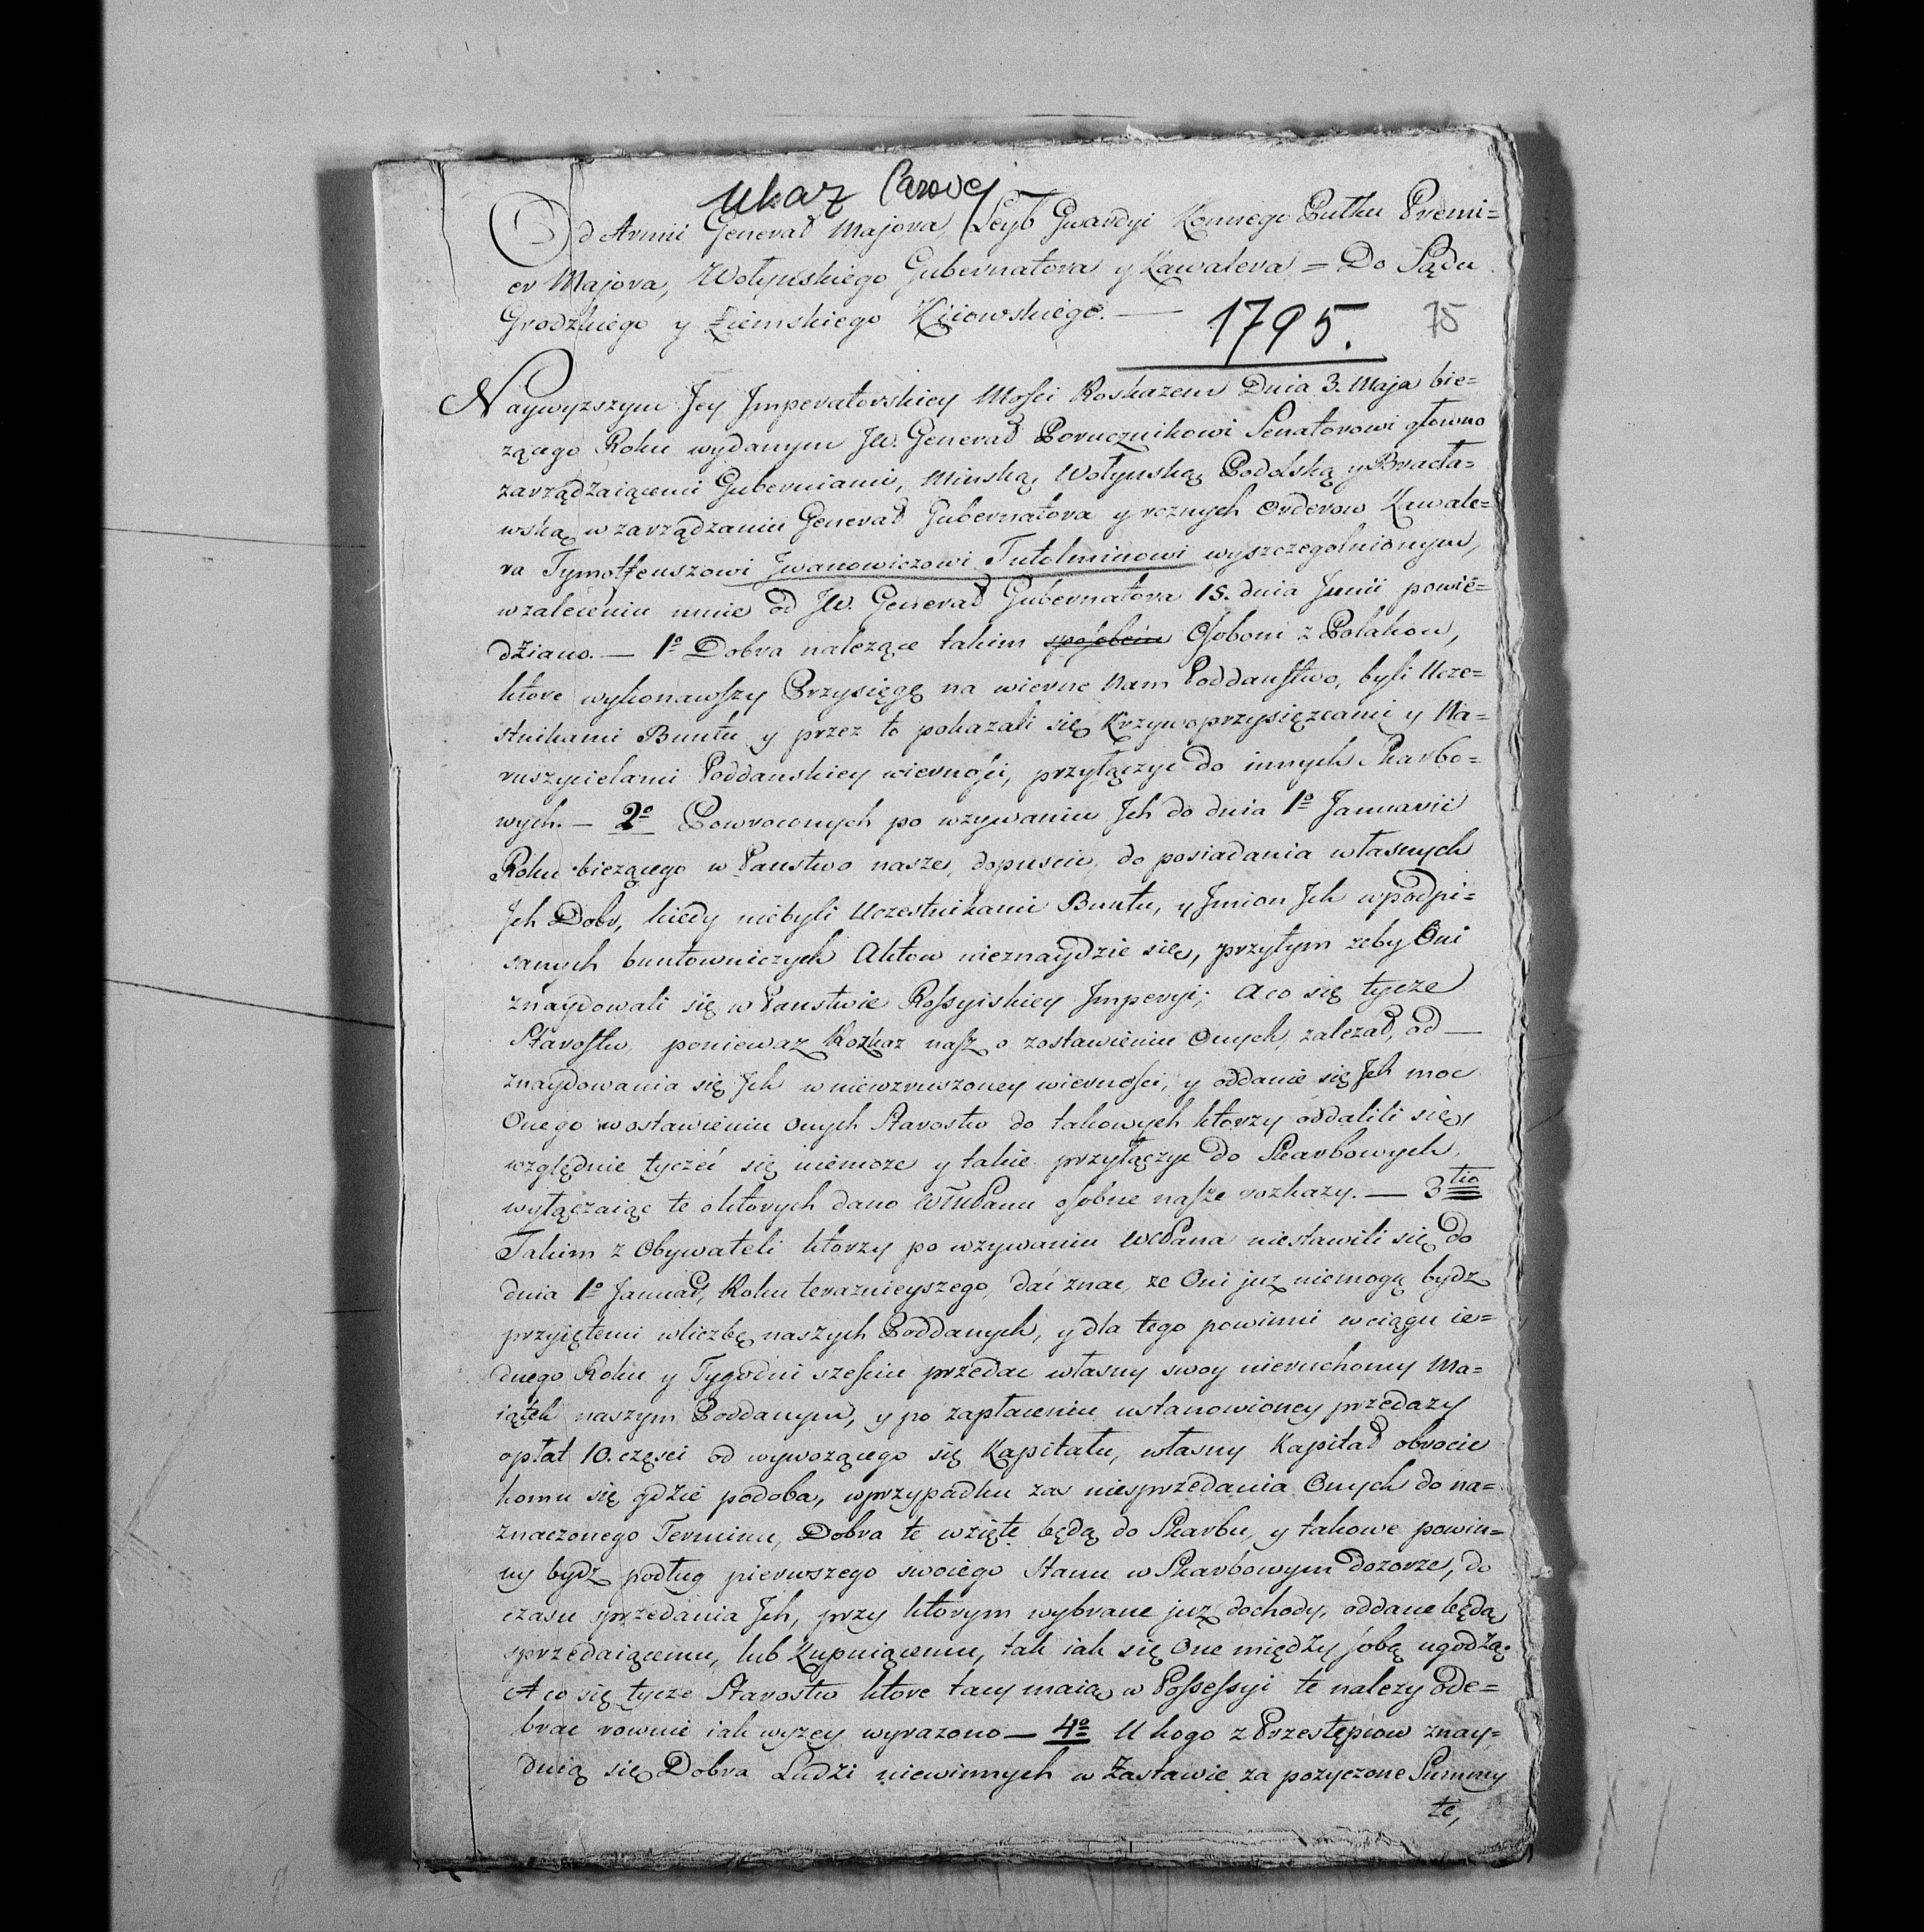 Ukaz Carowej
Od Armii Generał Majora, Leyb Gwardyi Konnego Pułku Premi=
er Majora, Wołyńskiego Gubernatora y Kawalera = Do Sądu
Grodzkiego y Ziemskiego Kijowskiego. —
1795.
75
Naywyzszym Jey Jmperatorskiey Mości Roskazem Dnia 3. Maja bie=
zącego Roku wydanym JW. Generał Porucznikowi Senatorowi głowno
zarządzaiącemi Guberniami, Minską, Wołynską, Podolską y Bracła=
wską, w zarządzaniu Generał Gubernatora y roznych Orderow Kawale=
ra Tymotfeuszowi Jwanowiczowi Tutolminowi wyszczegolnionym,
w zaleceniu mnie od JW. Generał Gubernatora 15. dnia Junii powie=
dziano. — 1º Dobra nalezące takim sposobem Osobom z Polakow,
ktore wykonawszy Przysięgę na wierne Nam Poddaństwo, byli Ucze=
stnikami Buntu y przez to pokazali się Krzywoprzysięzcami y Na=
ruszycielami Poddanskiey wierności, przyłączyc do innych Skarbo=
wych. — 2º Powroconych po wzywaniu Jch do dnia 1º Januarii
Roku biezącego w Panstwo nasze, dopuscic, do posiadania własnych
Jch Dobr, kiedy niebyli Uczestnikami Buntu, y Jmion Jch w podpi=
sanych buntowniczych Aktow nieznaydzie się, przytym zeby Oni
znaydowali się w Panstwie Rossyiskiey Jmperyi; A co się tycze
Starostw, poniewaz Rozkaz nasz o zostawieniu Onych, zalezał, od —
znaydowania się Jch w niewzruszoney wierności, y oddanie się Jch moc
Onego w ostawieniu onych Starostw do takowych ktorzy oddalili się,
względnie tyczeć się niemoze y takie przyłączyc do Skarbowych,
wyłączaiąc te o ktorych dano WMPanu osobne nasze rozkazy. — 3tio
Takim z Obywateli ktorzy po wzywaniu WPana niestawili się do
dnia 1º Januar, Roku teraznieyszego, dać znac, ze Oni juz niemogą bydz
przyiętemi w liczbę naszych Poddanych, y dla tego powinni w ciągu ie=
dnego Roku y Tygodni szesciu przedac własny swoy nieruchomy Ma=
iątek naszym Poddanym, y po zapłaceniu ustanowioney przedazy
opłat 10. części od wywozącego się Kapitału, własny Kapitał obrocic
komu się gdzie podoba, w przypadku zas niesprzedania Onych do na=
znaczonego Terminu, Dobra te wzięte będą do Skarbu, y takowe powin=
ny bydz podług pierwszego swoiego Stanu w Skarbowym dozorze, do
czasu sprzedania Jch, przy ktorym wybrane juz dochody, oddane będą
sprzedaiącemu, lub Kupuiącemu, tak iak się One między sobą ugodzą.
A co się tycze Starostw ktore tacy maią w Possessyi te nalezy ode=
brac rownie iak wyzey wyrazono — 4º U kogo z Przestępcow znay=
duią się Dobra Ludzi niewinnych w Zastawie za pozyczone Summy
te,